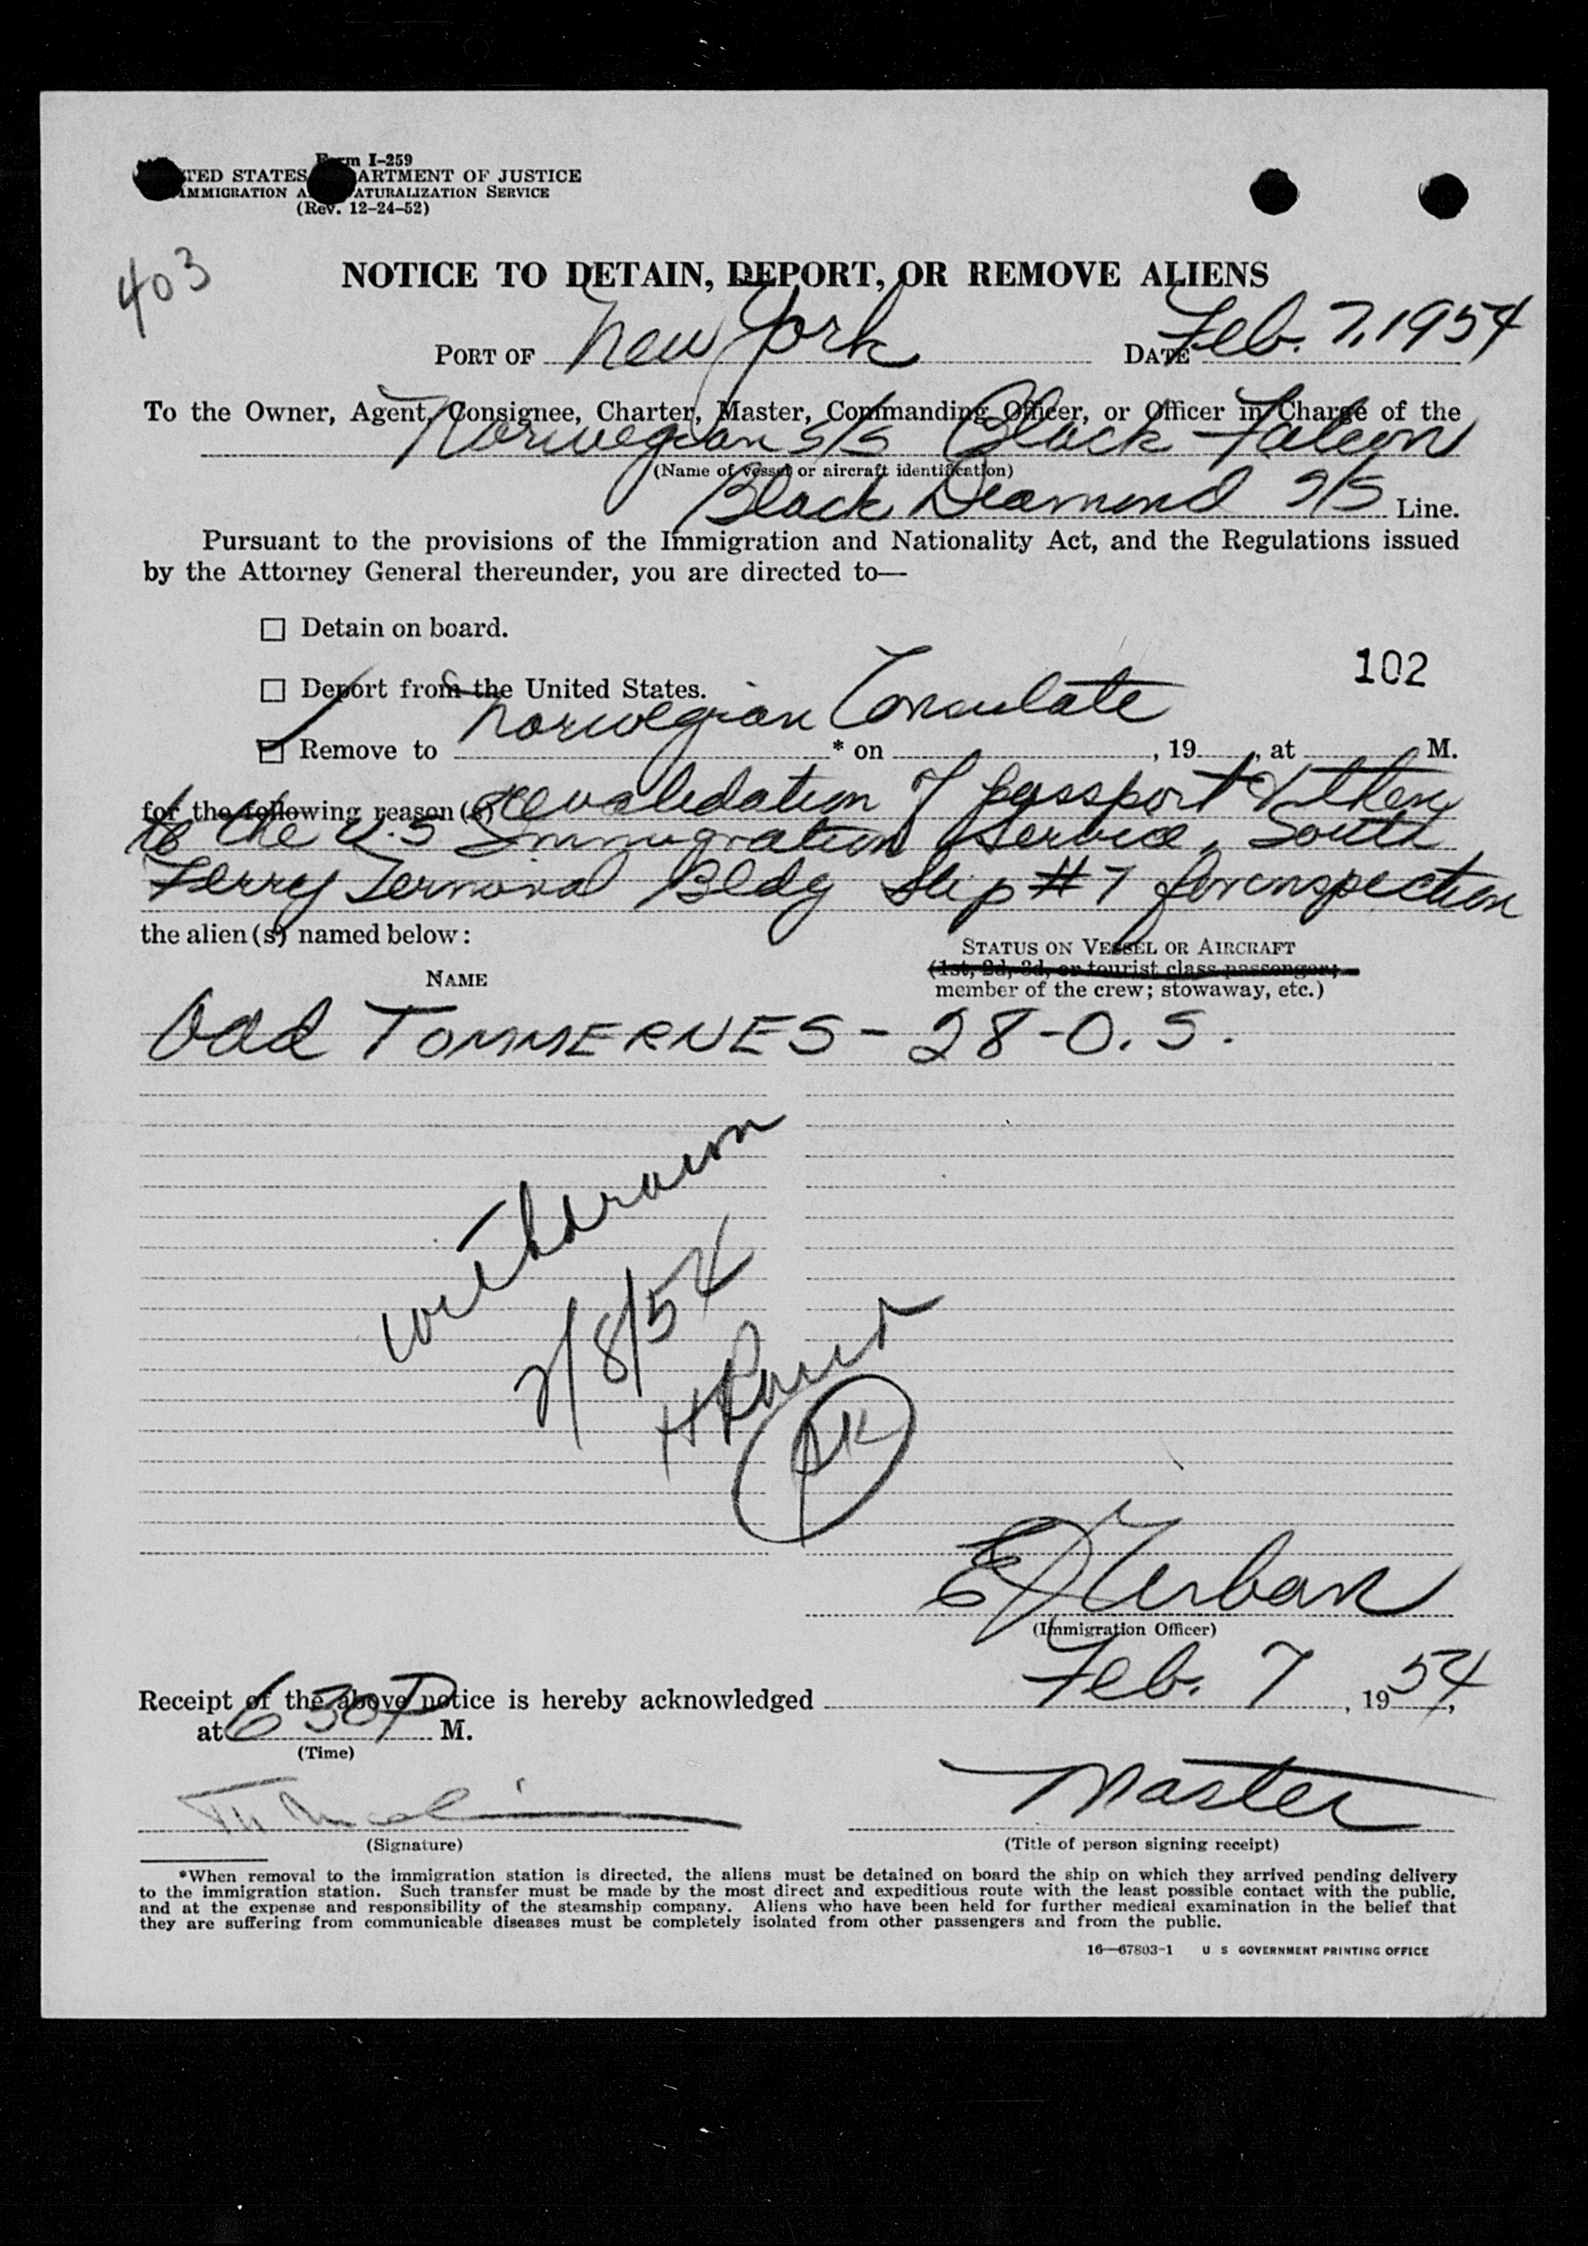 Form I-259
UNITED STATES DEPARTMENT OF JUSTICE
IMMIGRATION AND NATURALIZATION SERVICE
(Rev. 12-24-52)
403
NOTICE TO DETAIN, DEPORT, OR REMOVE ALIENS
PORT OF New York DATE Feb. 7, 1954
To the Owner, Agent, Consignee, Charter, Master, Commanding Officer, or Officer in Charge of the
Norwegian S/S Black Falcon
(Name of vessel or aircraft identification)
Black Diamond S/S Line.
Pursuant to the provisions of the Immigration and Nationality Act, and the Regulations issued
by the Attorney General thereunder, you are directed to—
Detain on board.
102
Deport from the United States.
Remove to Norwegian Consulate * on , 19 , at M.
for the following reason(s) revalidation of passport & then
to the U.S Immigration Service, South
Ferry Terminal Bldg Slip #7 for inspection
the alien(s) named below:
STATUS ON VESSEL OR AIRCRAFT
(1st, 2d, 3d, or tourist class passenger;
NAME
member of the crew; stowaway, etc.)
Odd TOMMERNES - 28 - O.S.
withdrawn
2/8/54
E J Urban
(Immigration Officer)
Receipt of the above notice is hereby acknowledged Feb. 7, 1954,
at 630 P M.
(Time)
Master
(Signature) (Title of person signing receipt)
*When removal to the immigration station is directed, the aliens must be detained on board the ship on which they arrived pending delivery
to the immigration station. Such transfer must be made by the most direct and expeditious route with the least possible contact with the public,
and at the expense and responsibility of the steamship company. Aliens who have been held for further medical examination in the belief that
they are suffering from communicable diseases must be completely isolated from other passengers and from the public.
16—67803-1 U S GOVERNMENT PRINTING OFFICE